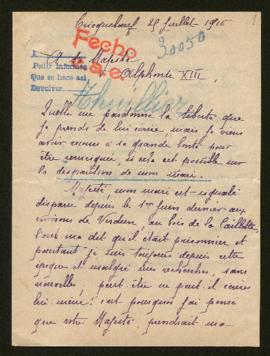 Cricquebœuf 25 juillet 1916
Fecho
30050
A Sa Majesté
Pedir informes
Que se hace así
Devolver.
Alphonse XIII
Thuillier
Qu'elle me pardonne la liberté que
je prends de lui écrire mais je viens
avoir recours à sa grande bonté pour
être renseignée, si cela est possible sur
la disparition de mon mari.
Majesté, mon mari est signalé
disparu depuis le 1er juin dernier aux
environs de Verdun au bois de la Caillette
l'on m'a dit qu'il était prisonnier, et
pourtant je suis toujours depuis cette
époque et malgré les recherches, sans
nouvelles, peut être ne peut il écrire
lui-même; c'est pourquoi j'ai pensé
que votre Majesté, prendrait ma